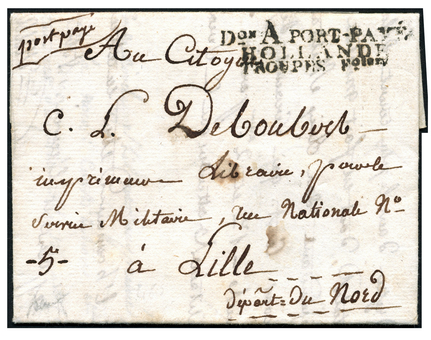 port payé
Don A PORT-PAYÉ
HOLLANDE
TROUPES
Au Citoyen
C. L. Deboubers
imprimeur Libraire, pour le
Service Militaire, rue Nationale No
-5- à Lille
Départ= du Nord